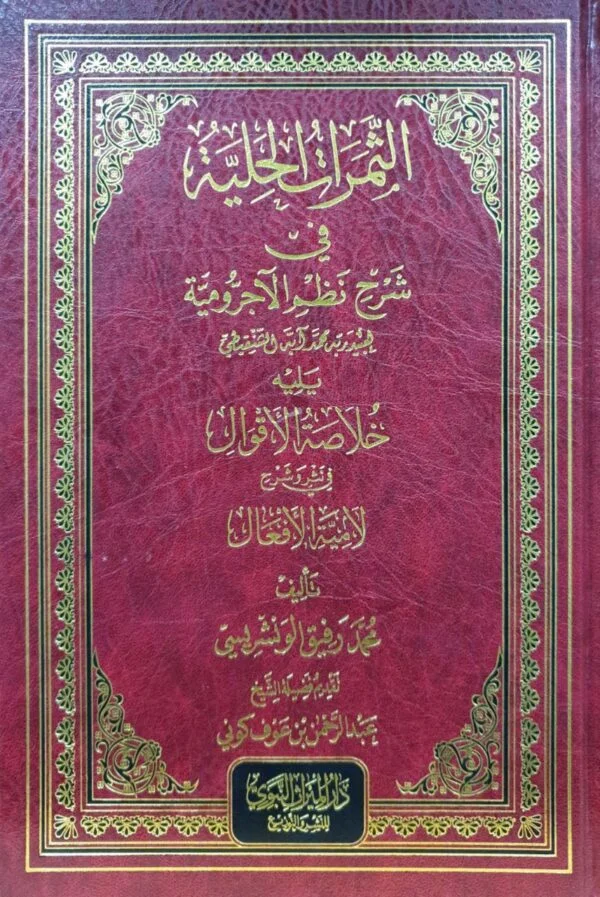 الثَّمَرَاتُ الحَلِيَّةُ
فِي
شَرْحِ نَظْمِ الآجُرُّومِيَّةِ
لعبيد ربه محمد آبه الشنقيطي
يَلِيْه
خُلَاصَةُ الأَقْوَالِ
فِي نَثْرِ وَشَرْحِ
لَامِيَّةِ الأَفْعَالِ
تَأْلِيف
مُحَمَّد رَفِيق الوَنْشَرِيسِيّ
تَقْدِيمُ فَضِيلَةِ الشَّيْخ
عَبْدِ الرَّحْمٰنِ بْن عَوْف كُونِي
دَارُ المِيرَاثِ النَّبَوِي
للنشر والتوزيع